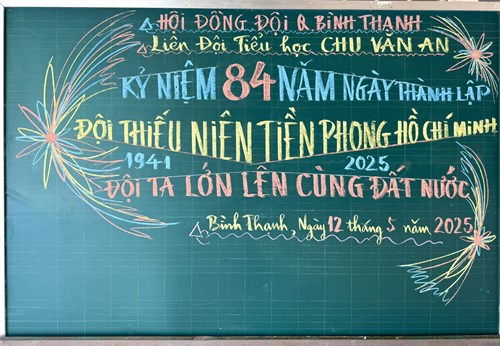 HỘI ĐỒNG ĐỘI Q BÌNH THẠNH
Liên Đội Tiểu học CHU VĂN AN
KỶ NIỆM 84 NĂM NGÀY THÀNH LẬP
ĐỘI THIẾU NIÊN TIỀN PHONG HỒ CHÍ MINH
1941 2025
ĐỘI TA LỚN LÊN CÙNG ĐẤT NƯỚC
Bình Thạnh, Ngày 12 tháng 5 năm 2025